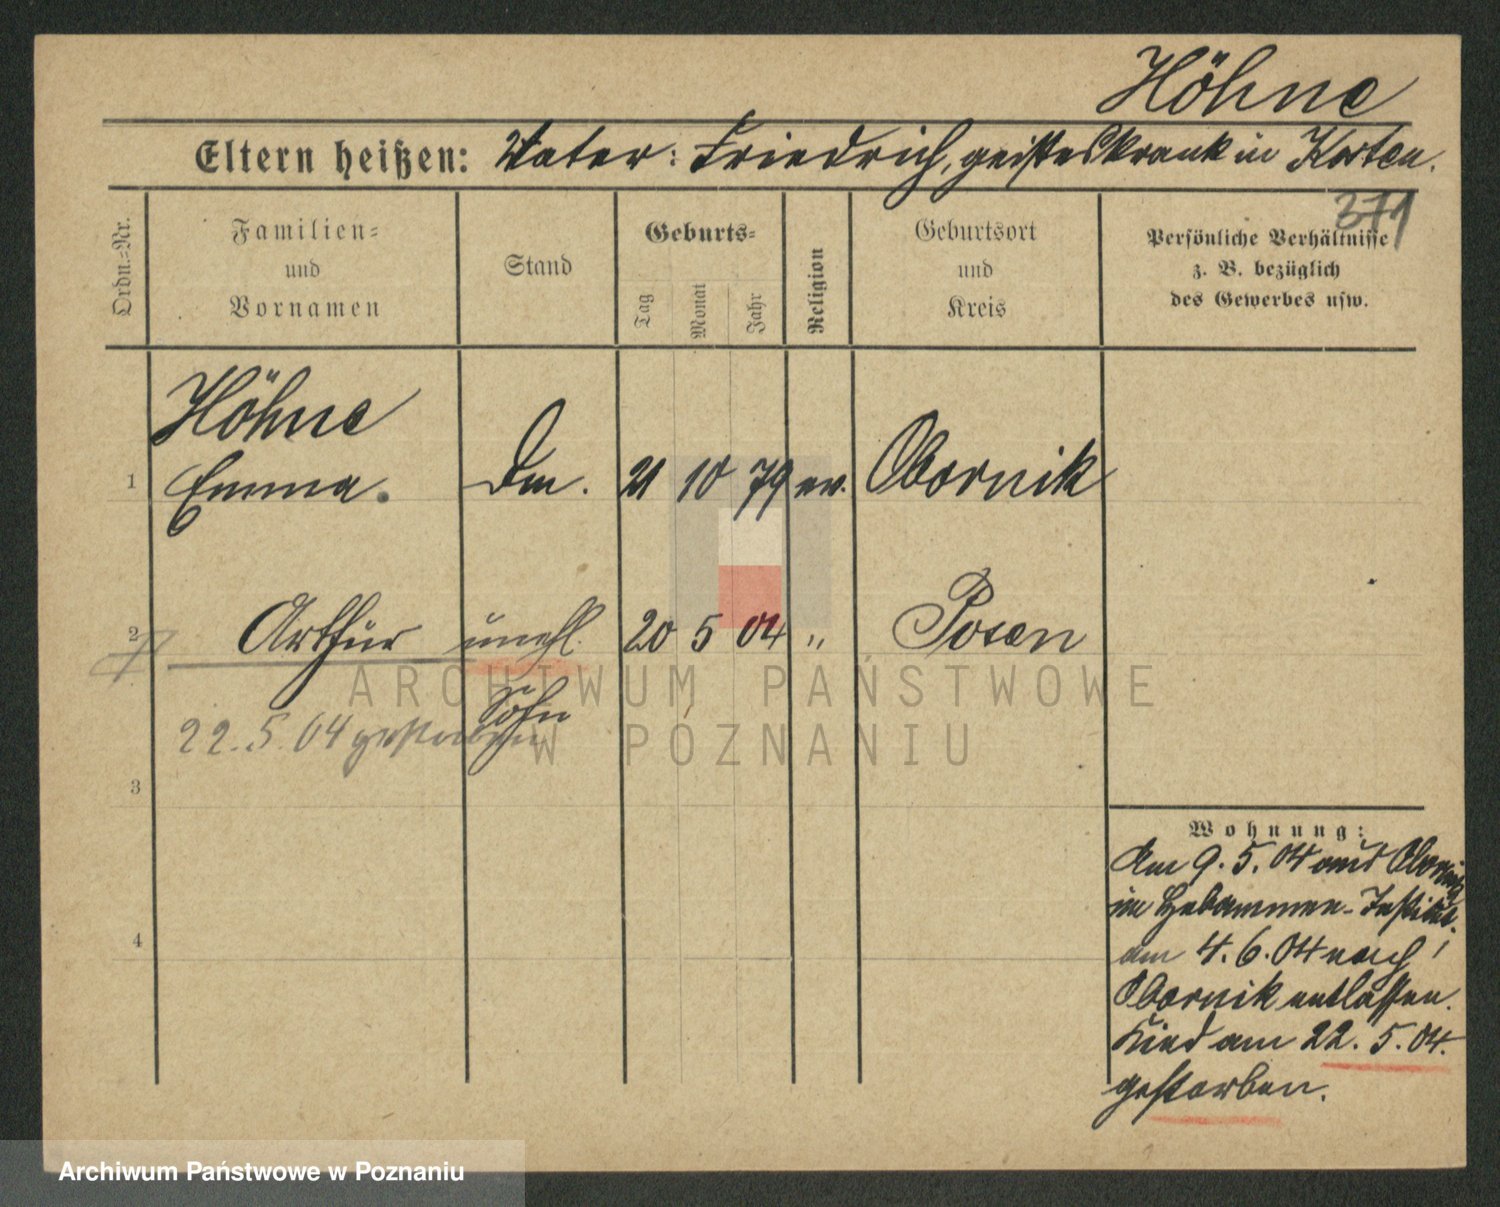 Höhne
Eltern heißen: Vater: Friedrich, geisteskrank in Kosten.
371
Ordn.-Nr.
Familien-
und
Vornamen
Stand
Geburts-
Tag
Monat
Jahr
Religion
Geburtsort
und
Kreis
Persönliche Verhältnisse
z. B. bezüglich
des Gewerbes usw.
Höhne
1 Emma. 21 10 79 ev. Obornik
2 Arthur unehl. 20 5 04 " Posen
Sohn
22.5.04 gestorben
3
4
Wohnung:
Am 9.5.04 aus Obornik
im Hebammen-Institut.
am 4.6.04 nach
Obornik entlassen.
Kind am 22.5.04.
gestorben.
ARCHIWUM PAŃSTWOWE
W POZNANIU
Archiwum Państwowe w Poznaniu